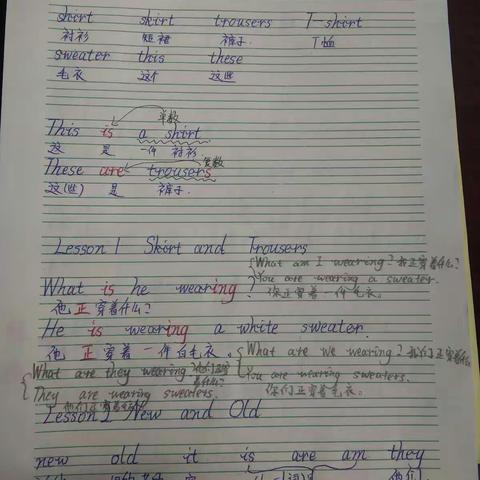 shirt skirt trousers T-shirt
衬衫 短裙 裤子 T恤
sweater this these
毛衣 这个 这些
单数
This is a shirt.
这 是 一件 衬衫.
复数
These are trousers
这(些) 是 裤子.
Lesson 1 Skirt and Trousers
What am I wearing? 我正穿着什么?
You are wearing a sweater.
What is he wearing? 你正穿着一件毛衣。
他正穿着什么?
He is wearing a white sweater.
他 正 穿着 一件白毛衣。 What are we wearing? 我们正穿着什么
What are they wearing 他们正穿着什么?
You are wearing sweaters.
They are wearing sweaters. 你们正穿着毛衣。
他们正穿着毛衣
Lesson 2 New and Old
new old it is are am they